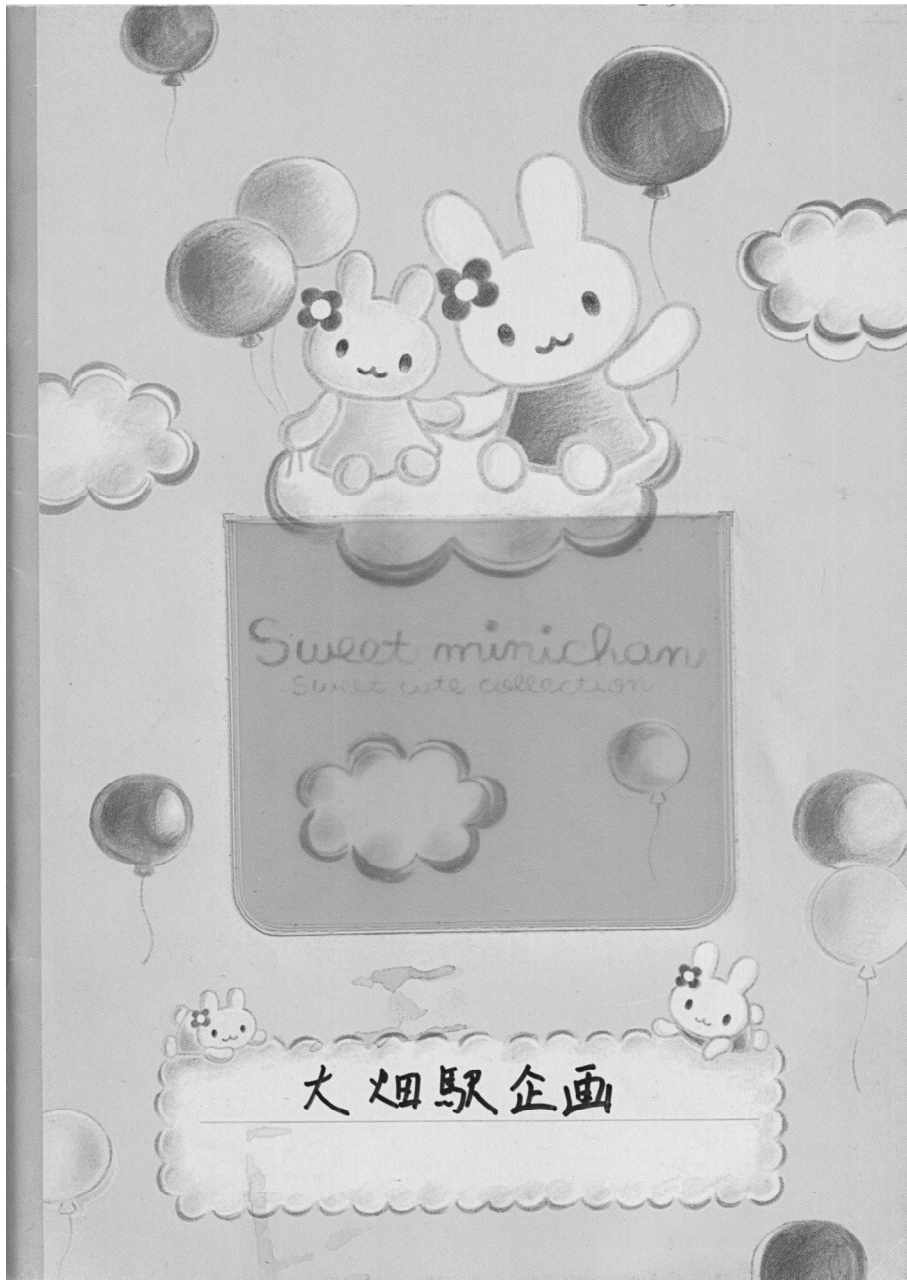 Sweet minichan
Sweet cute collection
大畑駅企画